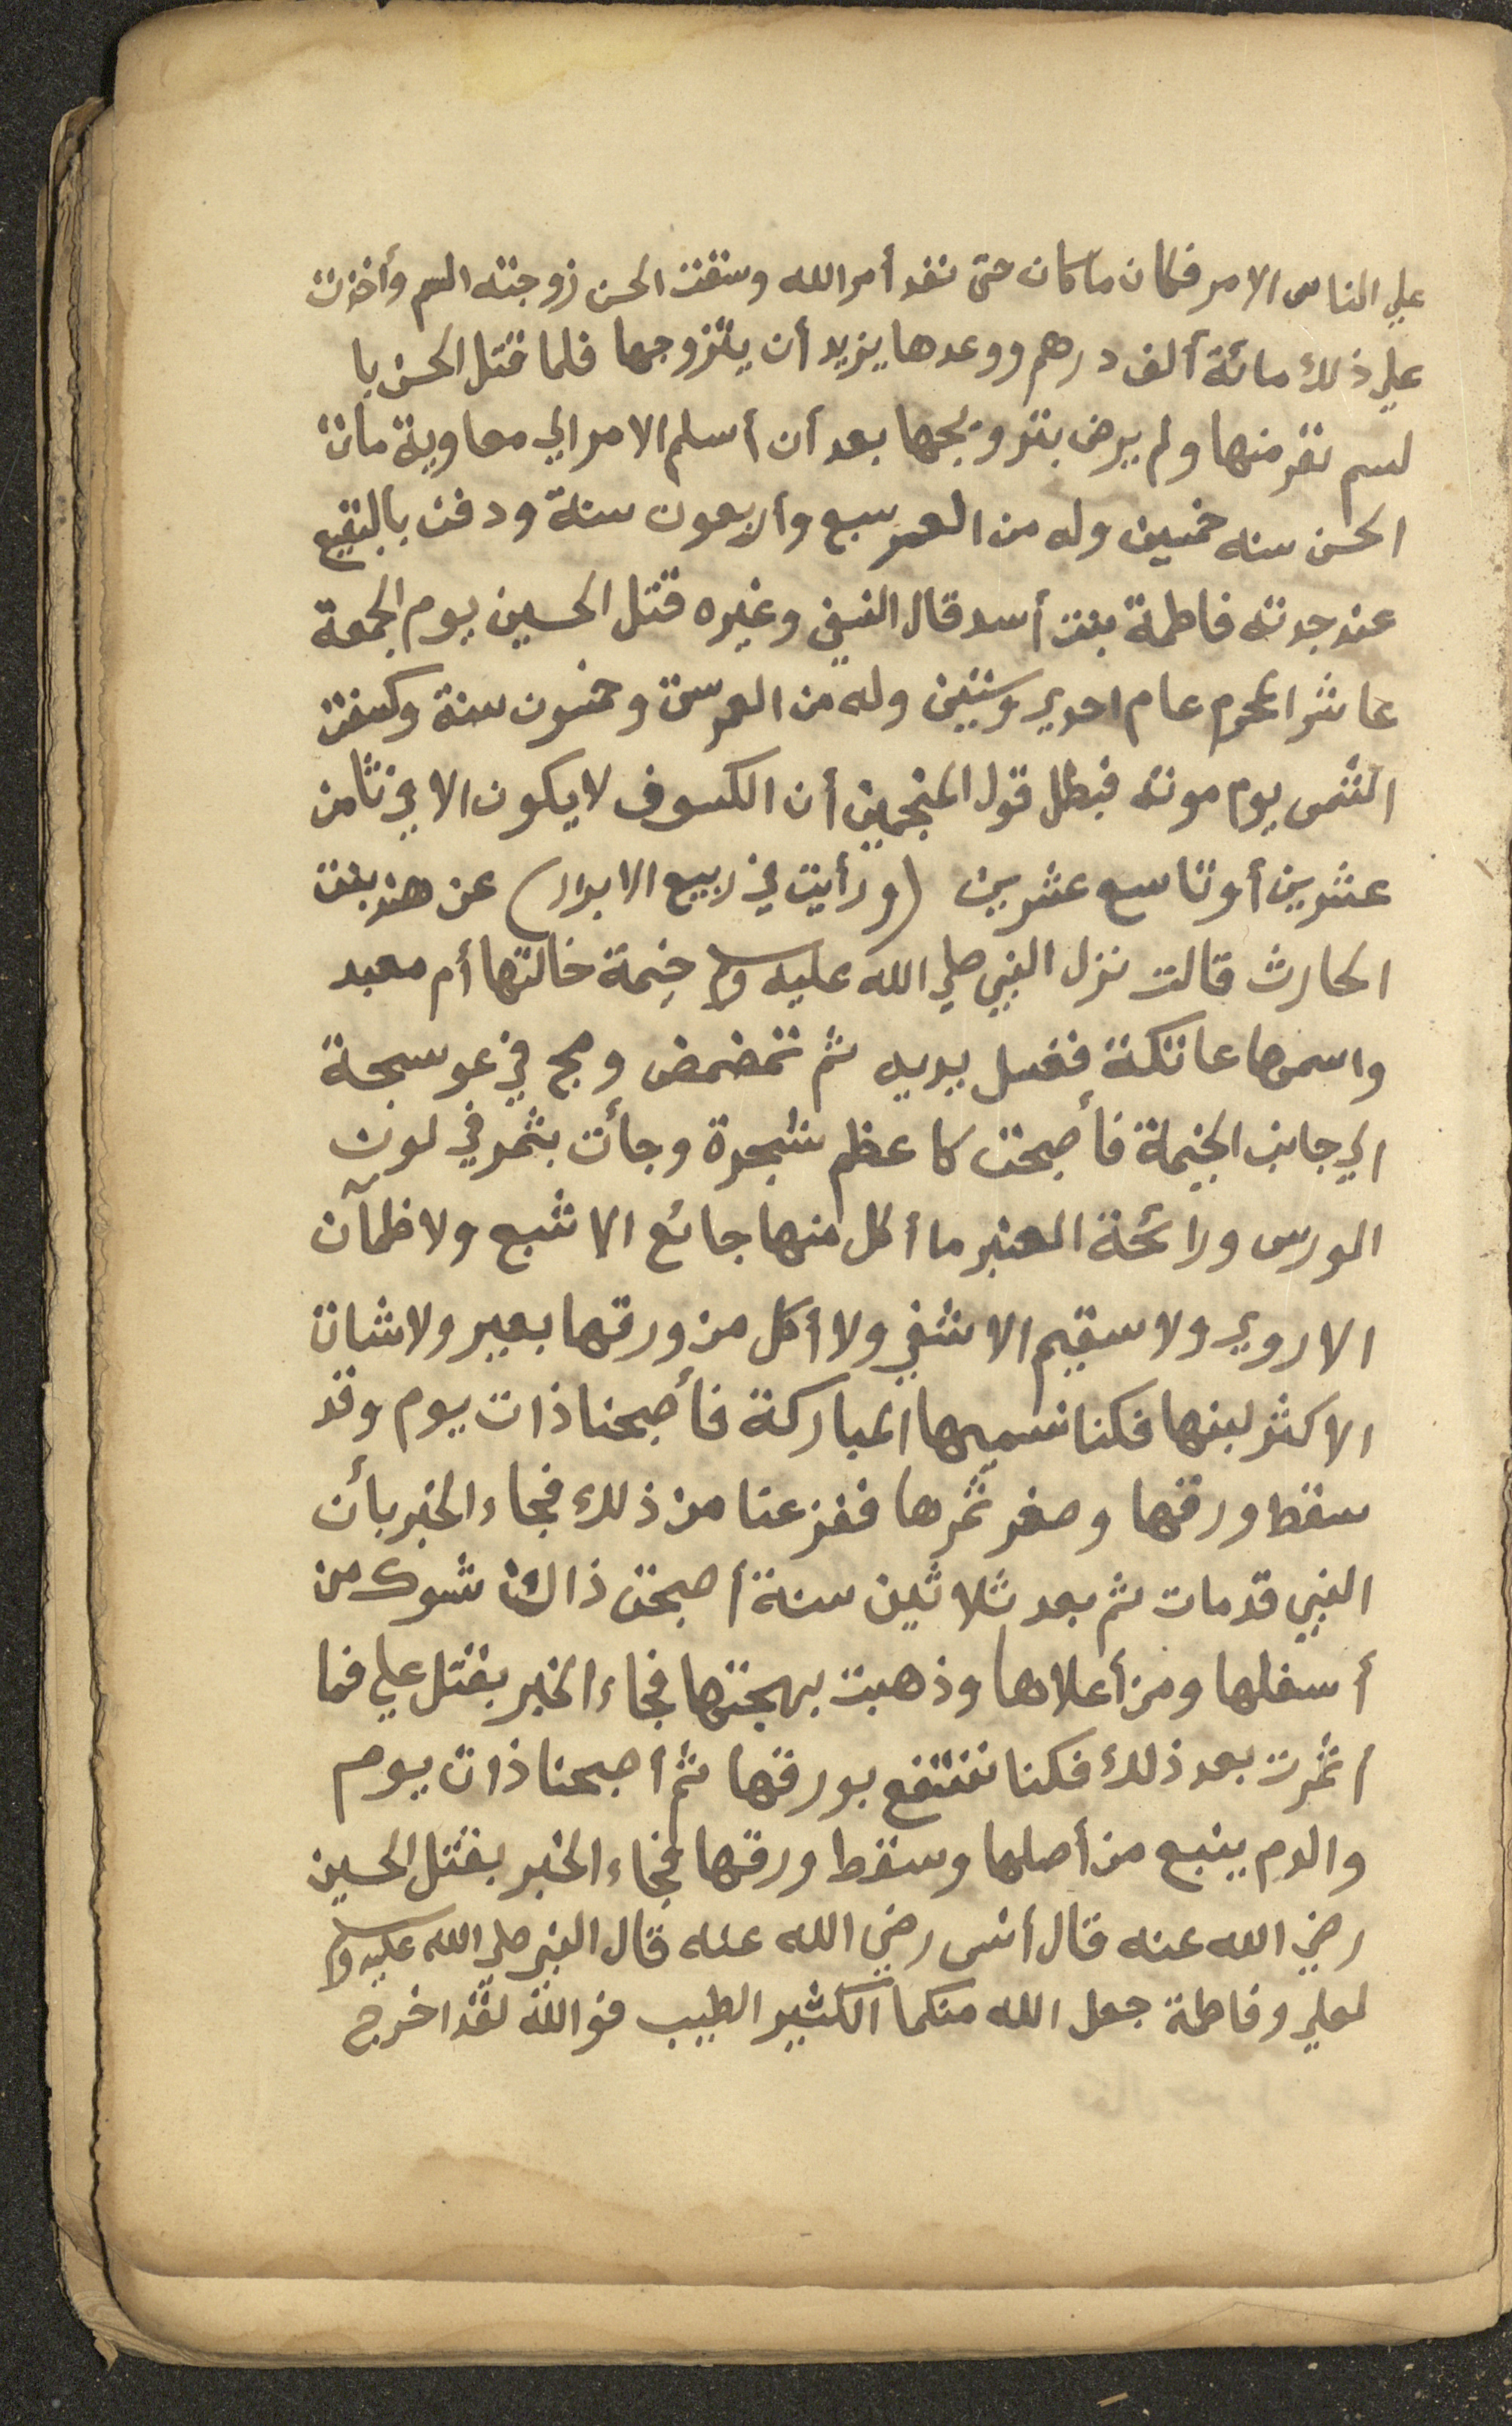 علي الناس الامر فكان ماكان حتى نفد أمر الله وسقت الحسن زوجته السم وأخذت
علي ذلك مائة ألف درهم ووعدها يزيد أن يتزوجها فلما قتل الحسن با
لسم نفر منها ولم يرض بتزويجها بعد أن أسلم الامر الي معاوية مات
الحسن سنه خمسين وله من العمر سبع وأربعون سنة ودفن بالبقيع
عند جدته فاطمة بنت أسد قال النسفي وغيره قتل الحسين يوم الجمعة
عاشر المحرم عام احدي وستين وله من العمر ست وخمسون سنة وكسفت
الشمس يوم موته فبطل قول المنجمين أن الكسوف لا يكون الا في ثامن
عشرين أو تاسع عشرين (ورأيت في ربيع الابرار) عن هند بنت
الحارث قالت نزل النبي صلي الله عليه وسلم خيمة خالتها أم معبد
واسمها عاتكة فغسل يديه ثم تمضمض ومج في عوسجة
الي جانب الخيمة فأصبحت كاعظم شجرة وجأت بثمر في لون
الورس ورائحة العنبر ما أكل منها جائع الا شبع ولا ظمآن
الا روي ولا سقيم الا شفي ولا أكل من ورقها بعير ولا شات
الا كثر لبنها فكنا نسميها المباركة فأصبحنا ذات يوم وقد
سقط ورقها وصغر ثمرها ففزعنا من ذلك فجاء الخبر بأن
النبي قد مات ثم بعد ثلاثين سنة أصبحت ذات شوك من
أسفلها ومن أعلاها وذهبت بهجتها فجاء الخبر بقتل علي فما
اثمرت بعد ذلك فكنا ننتفع بورقها ثم أصبحنا ذات يوم
والدم ينبع من أصلها وسقط ورقها فجاء الخبر بقتل الحسين
رضي الله عنه قال أنس رضي الله عنه قال النبي صلي الله عليه وسلم
لعلي وفاطمة جعل الله منكما الكثير الطيب فوالله لقد اخرج